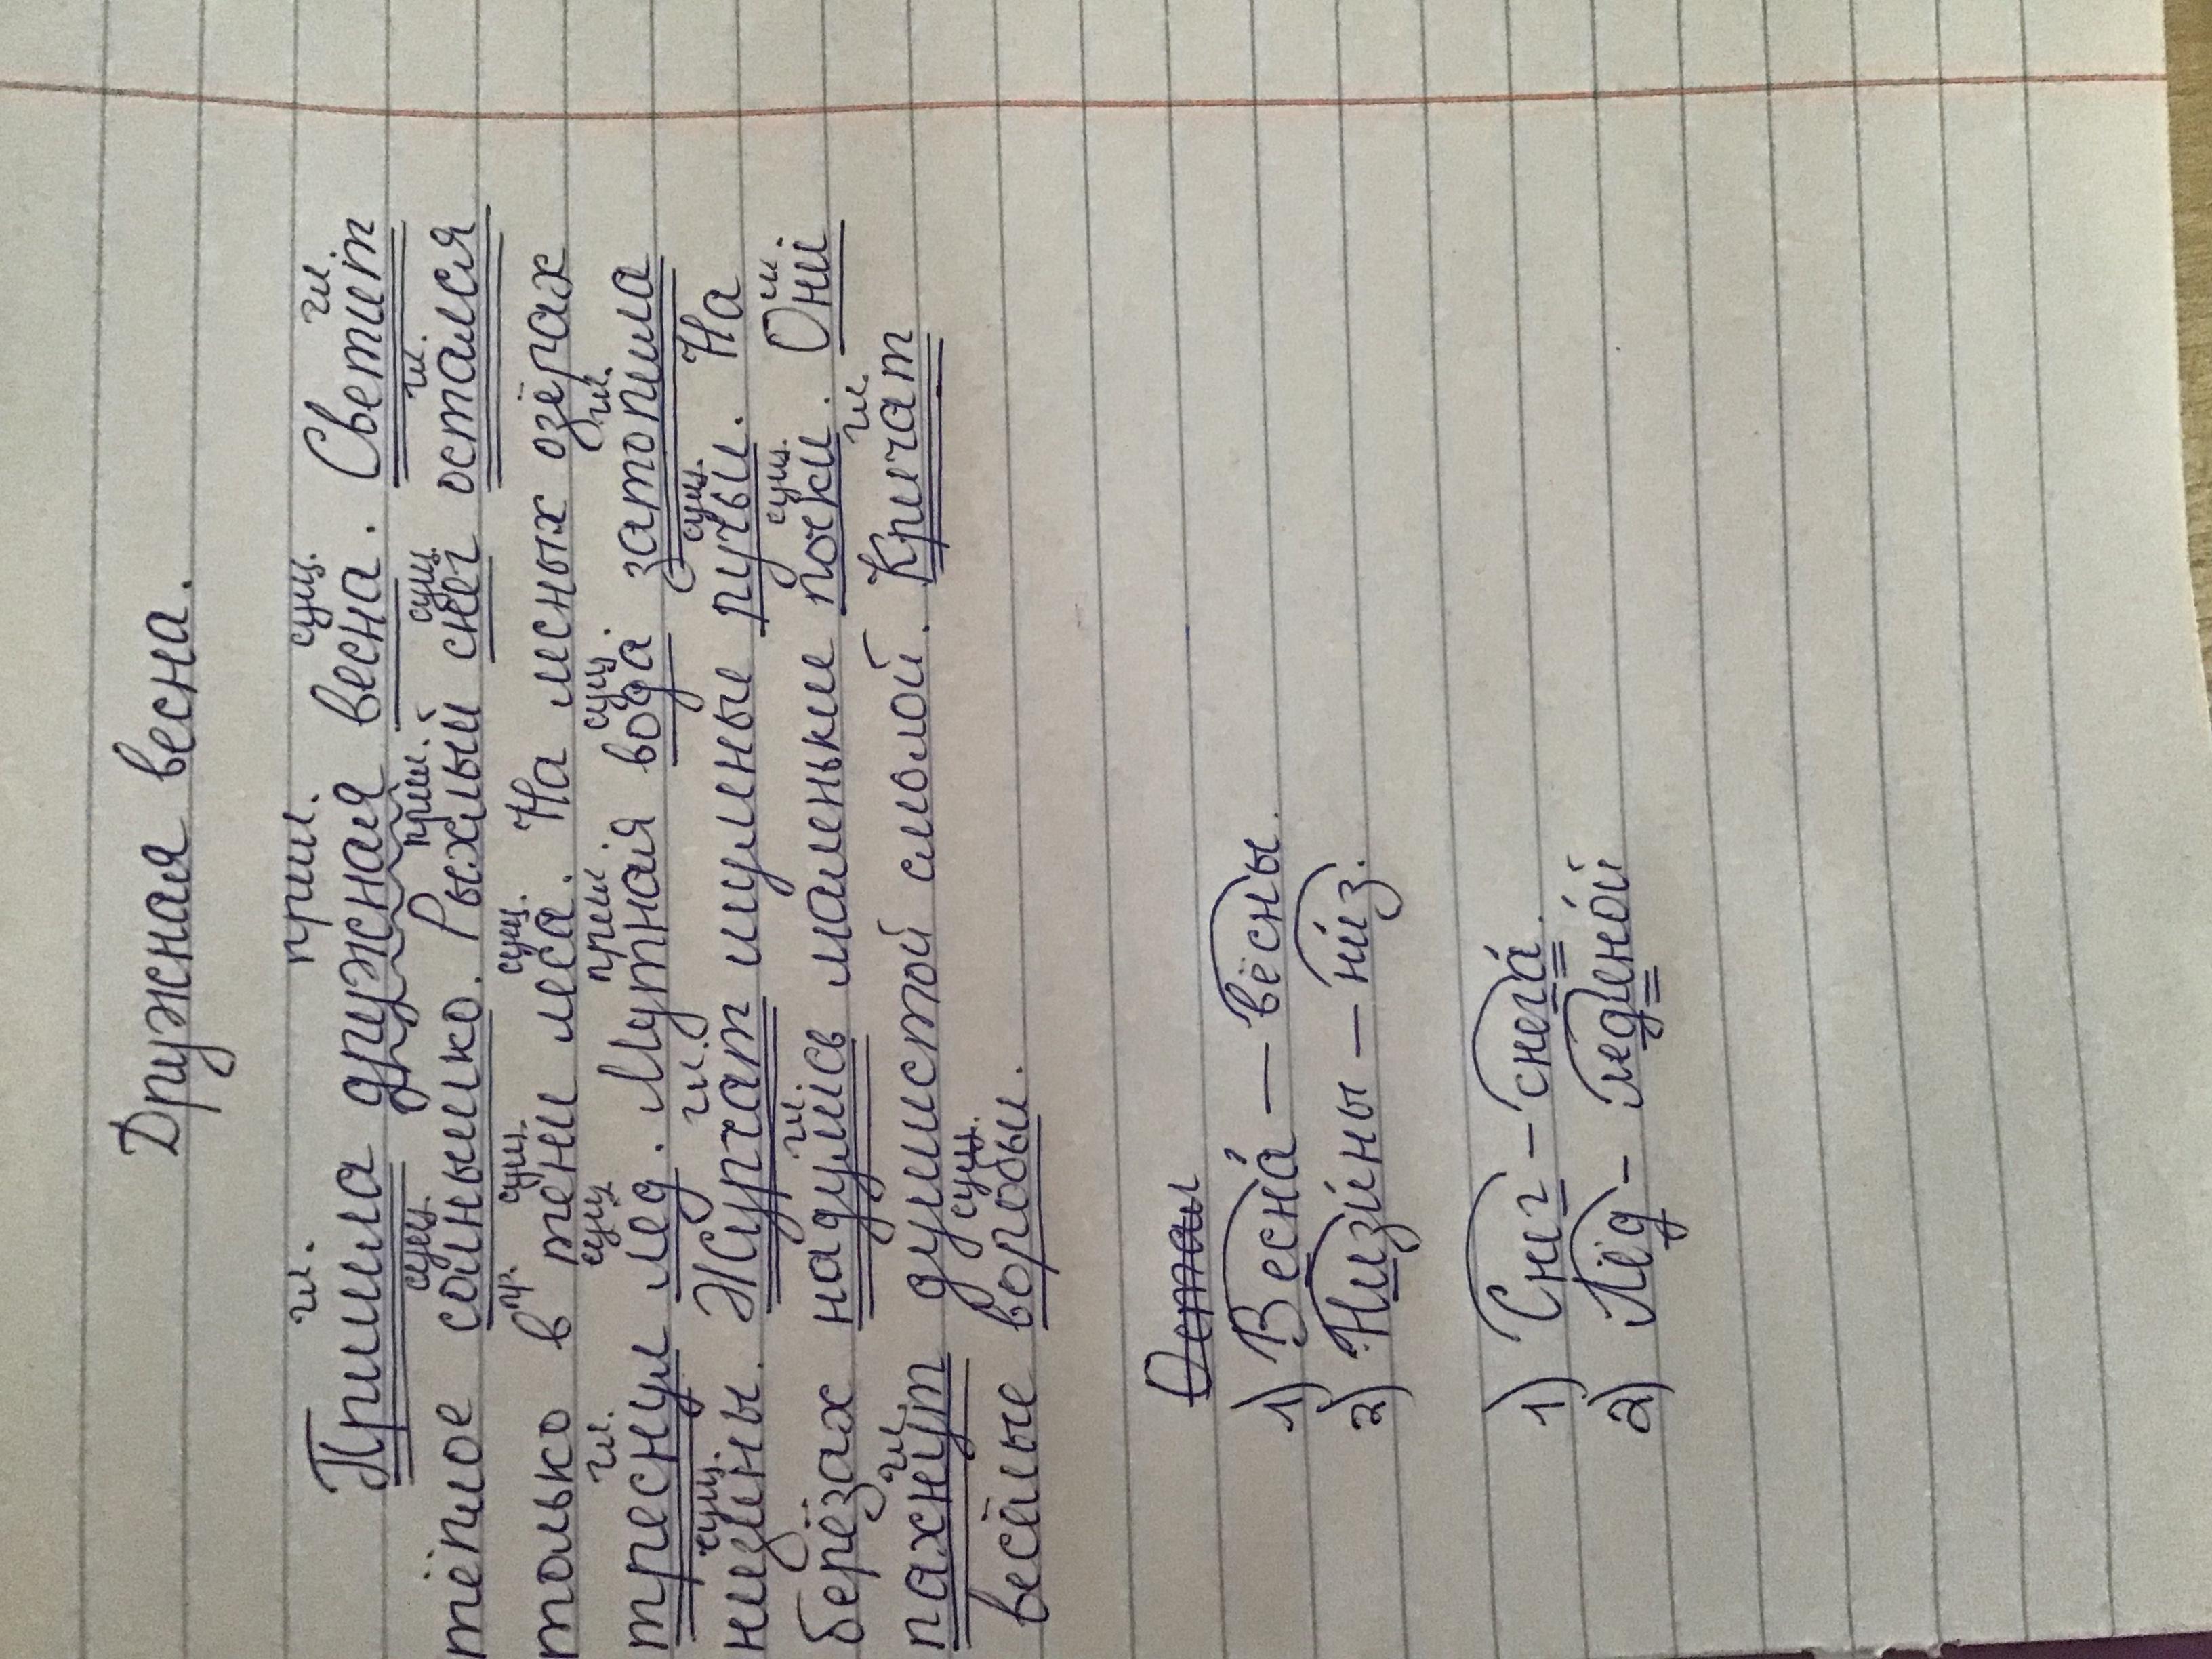 Дружная весна.
гл. прил. сущ. гл.
Пришла дружная весна. Светит
сущ. прил. сущ. гл.
тёплое солнышко. Рыхлый снег остался
пр. сущ. сущ.
только в тени леса. На лесных озёрах
гл. сущ. прил. сущ. гл.
треснул лед. Мутная вода затопила
сущ. гл. сущ.
низины. Журчат шумные ручьи. На
гл. сущ. м.
берёзах надулись маленькие почки. Они
гл. гл.
пахнут душистой смолой. Кричат
сущ.
весёлые воробьи.
Остал
1) Весна́ — вёсны.
2) Низи́ны — ни́з.
1) Снег – снега́.
2) Лёд – ледяно́й